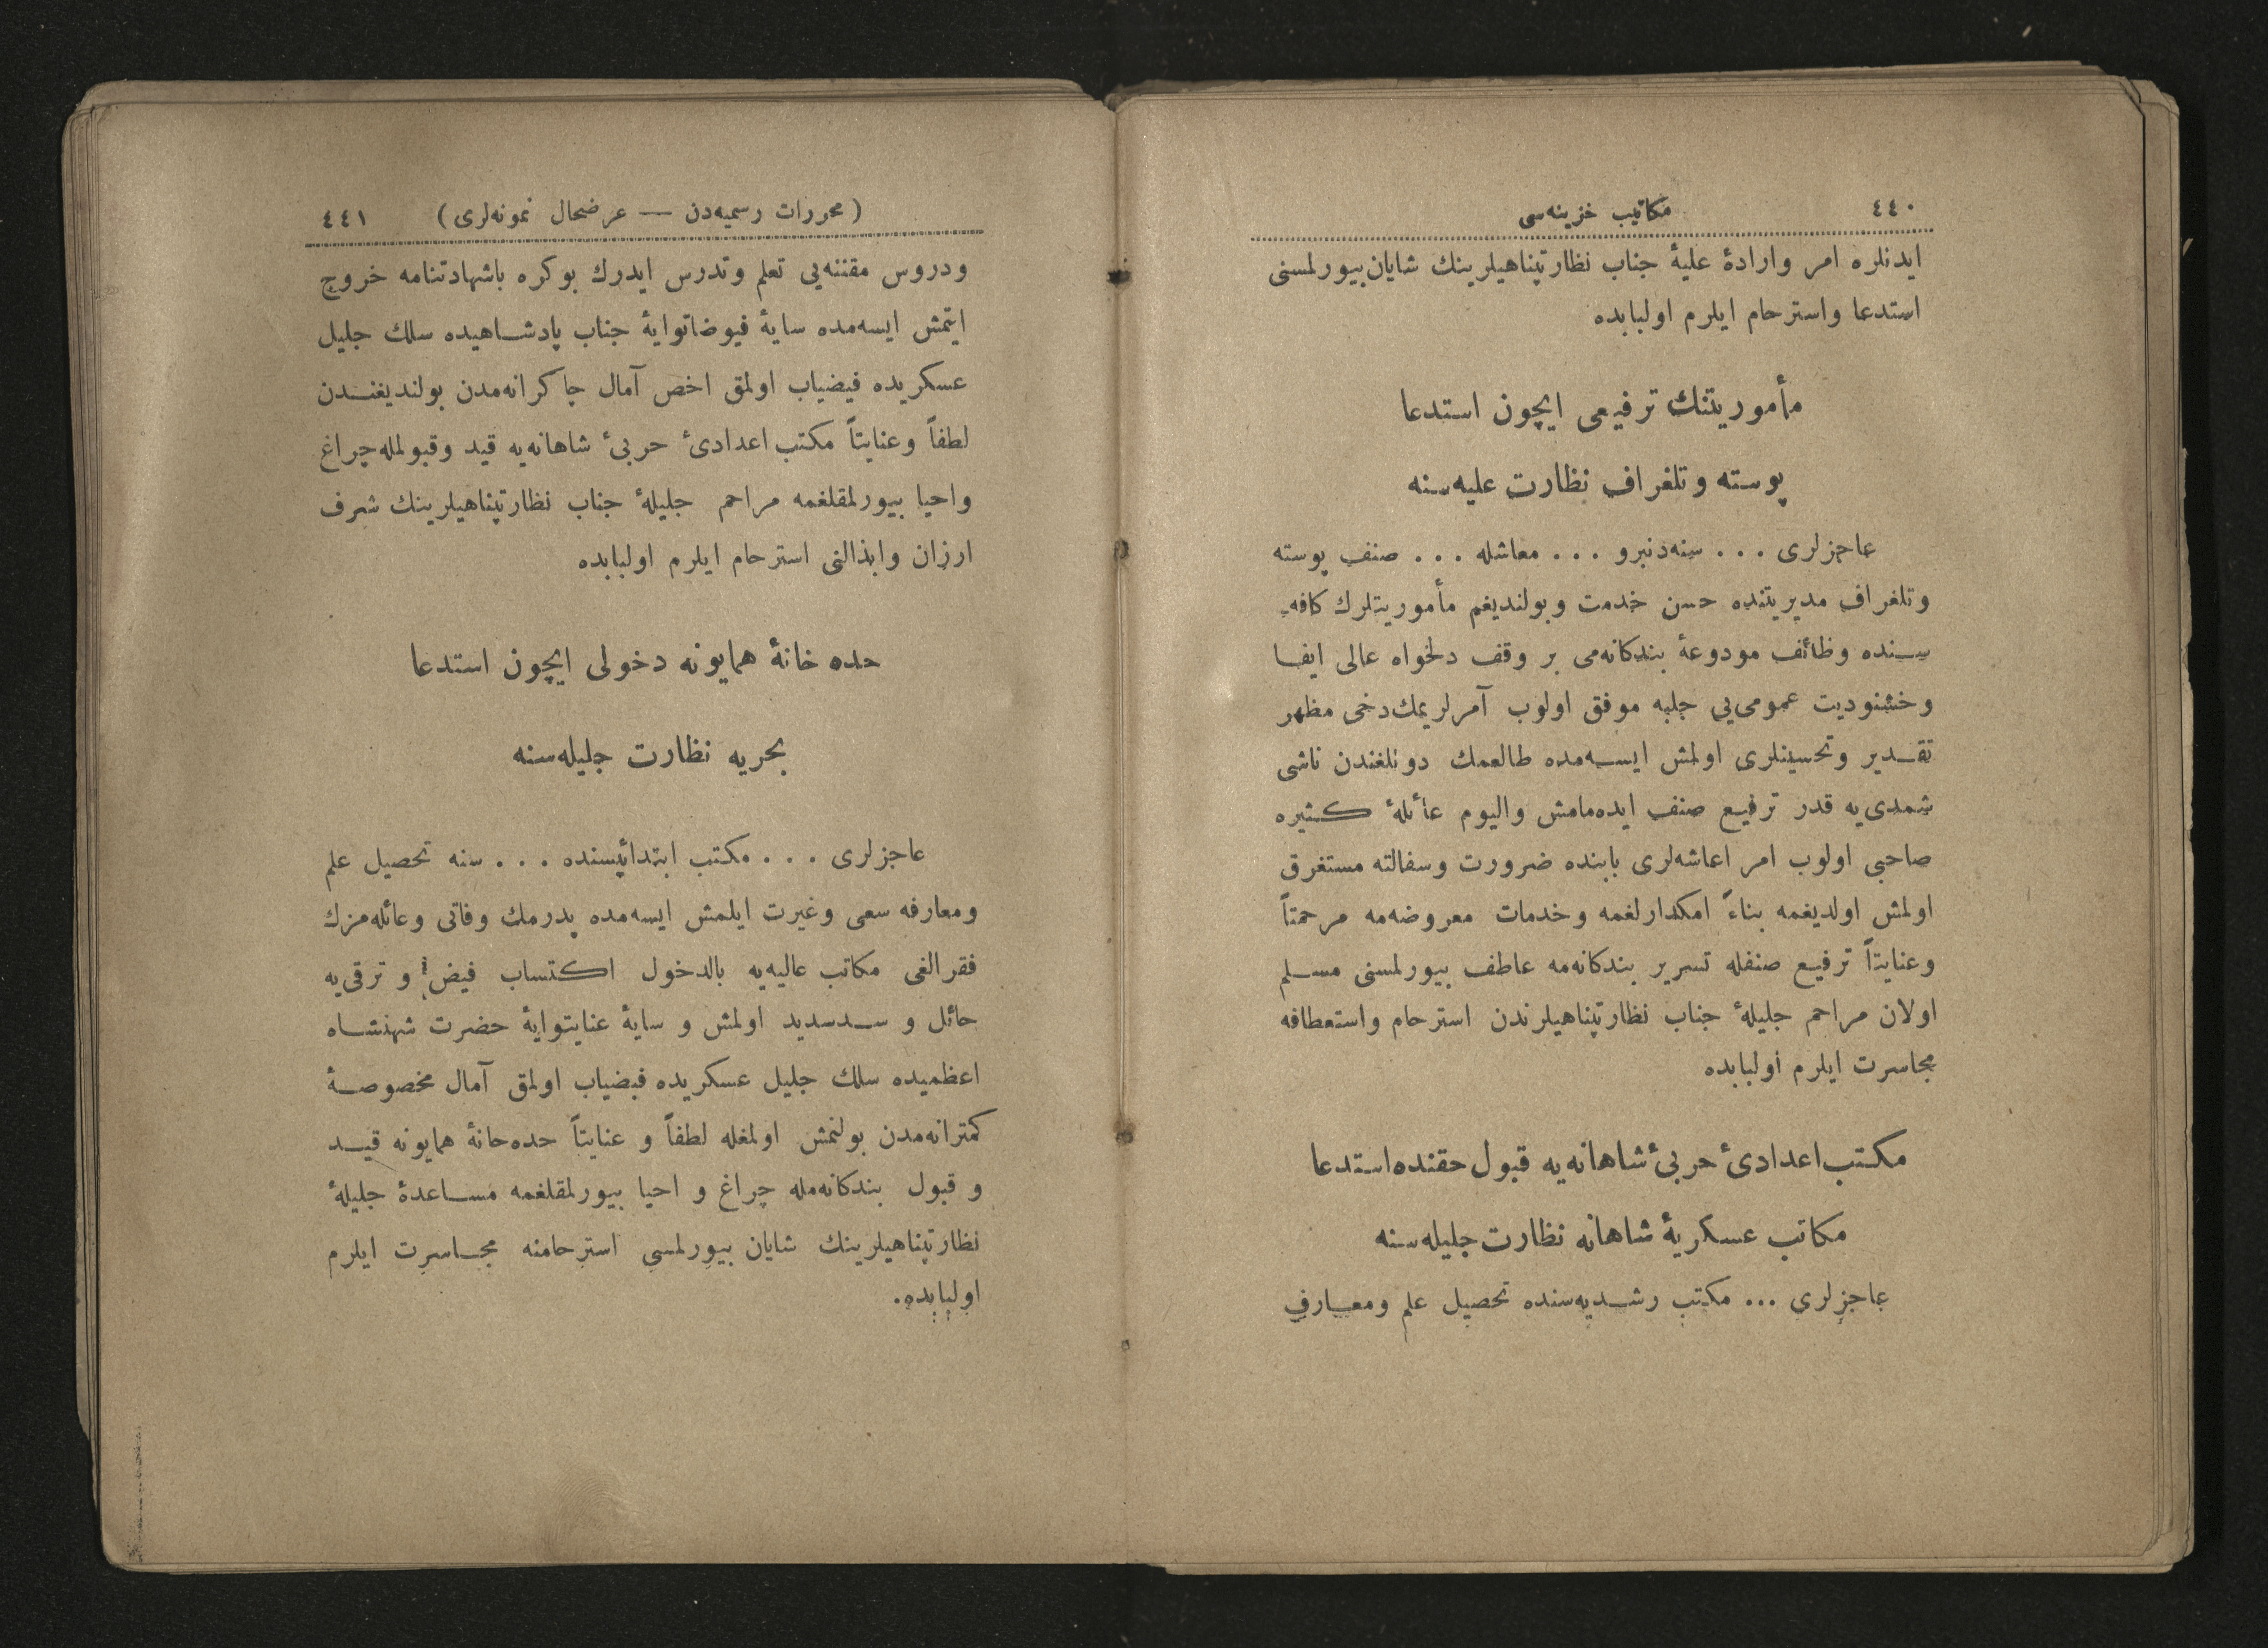 ٤٤٠
مكاتيب خزينه‌سى
ايدنلره امر وارادۀ عليۀ جناب نظارتپناهيلرينك شايان بيورلمسنى
استدعا واسترحام ايلرم اولبابده
مأموريتنك ترفيعى ايچون استدعا
پوسته وتلغراف نظارت عليه‌سنه
عاجزلرى . . . سنه‌دنبرو . . . معاشله . . . صنف پوسته
وتلغراف مديريتنده حسن خدمت وبولنديغم مأموريتلرك كافه‌ـ
سـنده وظائف مودوعۀ بندكانه‌مى بر وفق دلخواه عالى ايفـا
وخشنوديت عمومى‌يى جلبه موفق اولوب آمرلريمك‌دخى مظهر
تقـدير وتحسينلرى اولمش ايسـه‌مده طالعمك دونلغندن ناشى
شمدى‌يه قدر ترفيـع صنف ايده‌مامش واليوم عائلۀ كـثيره
صاحبى اولوب امر اعاشه‌لرى بابنده ضرورت وسفالته مستغرق
اولمش اولديغمه بناءً امكدارلغمه وخدمات معروضه‌مه مرحمتاً
وعنايتاً ترفيـع صنفله تسرير بندكانه‌مه عاطف بيورلمسنى مسـلم
اولان مراحم جليلۀ جناب نظارتپناهيلرندن استرحام واستعطافه
مجاسرت ايلرم اولبابده
مكـتب اعدادىٔ حربىٔ شاهانه‌يه قبول حقنده استدعا
مكاتب عسكريۀ شاهانه نظارت جليله‌سنه
عاجزلرى ... مكتب رشـديه‌سنده تحصيل علم ومعـارف
(محررات رسميه‌دن — عرضحال نمونه‌لرى)
٤٤١
ودروس مقننه‌يى تعلم وتدرس ايدرك بوكره باشهادتنامه خروج
ايتمش ايسه‌مده سايۀ فيوضاتوايۀ جناب پادشـاهيده سلك جليل
عسكريده فيضياب اولمق اخص آمال چاكرانه‌مدن بولنديغنـدن
لطفاً وعنايتاً مكتب اعدادىٔ حربىٔ شاهانه‌يه قيد وقبولمله چراغ
واحيا بيورلمقلغمه مراحم جليلۀ جناب نظارتپناهيلرينك شرف
ارزان وابذالنى استرحام ايلرم اولبابده
حده خانۀ همايونه دخولى ايچون استدعا
بحريه نظارت جليله‌سنه
عاجزلرى . . . مكتب ابتدائيسنده . . . سنه تحصيل علم
ومعارفه سعى وغيرت ايلمش ايسه‌مده پدرمك وفاتى وعائله‌مزك
فقرالغى مكاتب عاليه‌يه بالدخول اكتساب فيض و ترقى‌يه
حائل و سـدسديد اولمش و سايۀ عنايتوايۀ حضرت شهنشـاه
اعظميده سلك جليل عسكريده فيضياب اولمق آمال مخصوصـۀ
كمترانه‌مدن بولنمش اولمغله لطفاً و عنايتاً حده‌خانۀ همايونه قيـد
و قبول بندكانه‌مله چراغ و احيا بيورلمقلغمه مسـاعدۀ جليلۀ
نظارتپناهيلرينك شايان بيورلمسى استرحامنه مجـاسرت ايلرم
اولبابده.